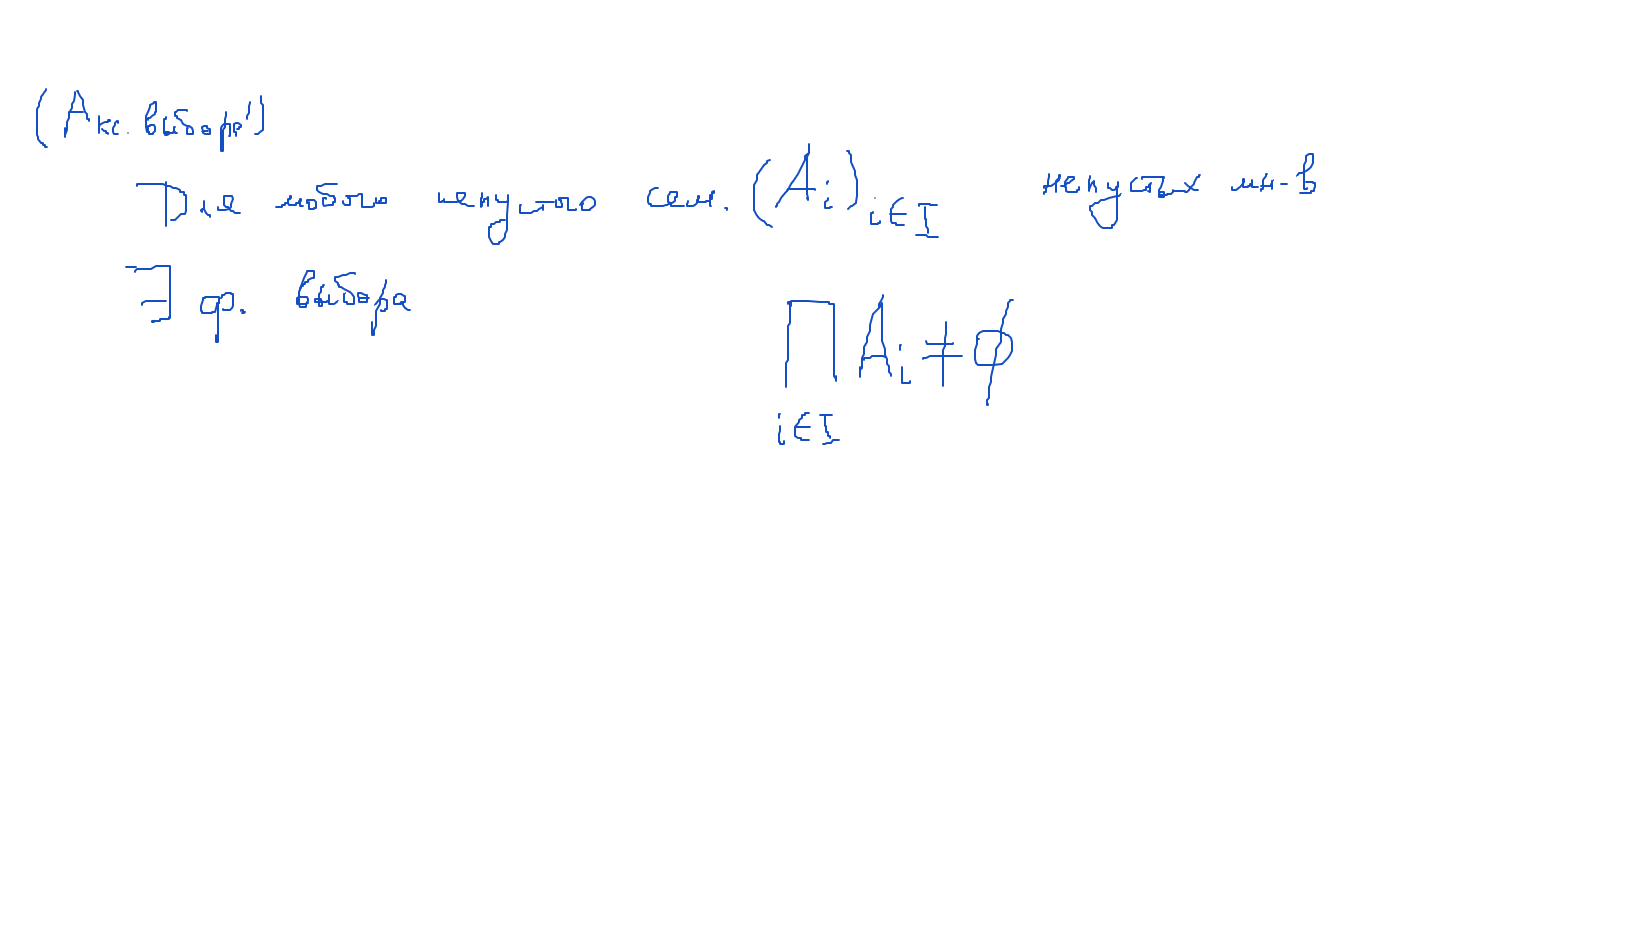 (Акс. выбора')
Для любого непустого сем. (A_i)_{i∈I} непустых мн-в
∃ ф. выбора
∏_{i∈I} A_i ≠ ∅